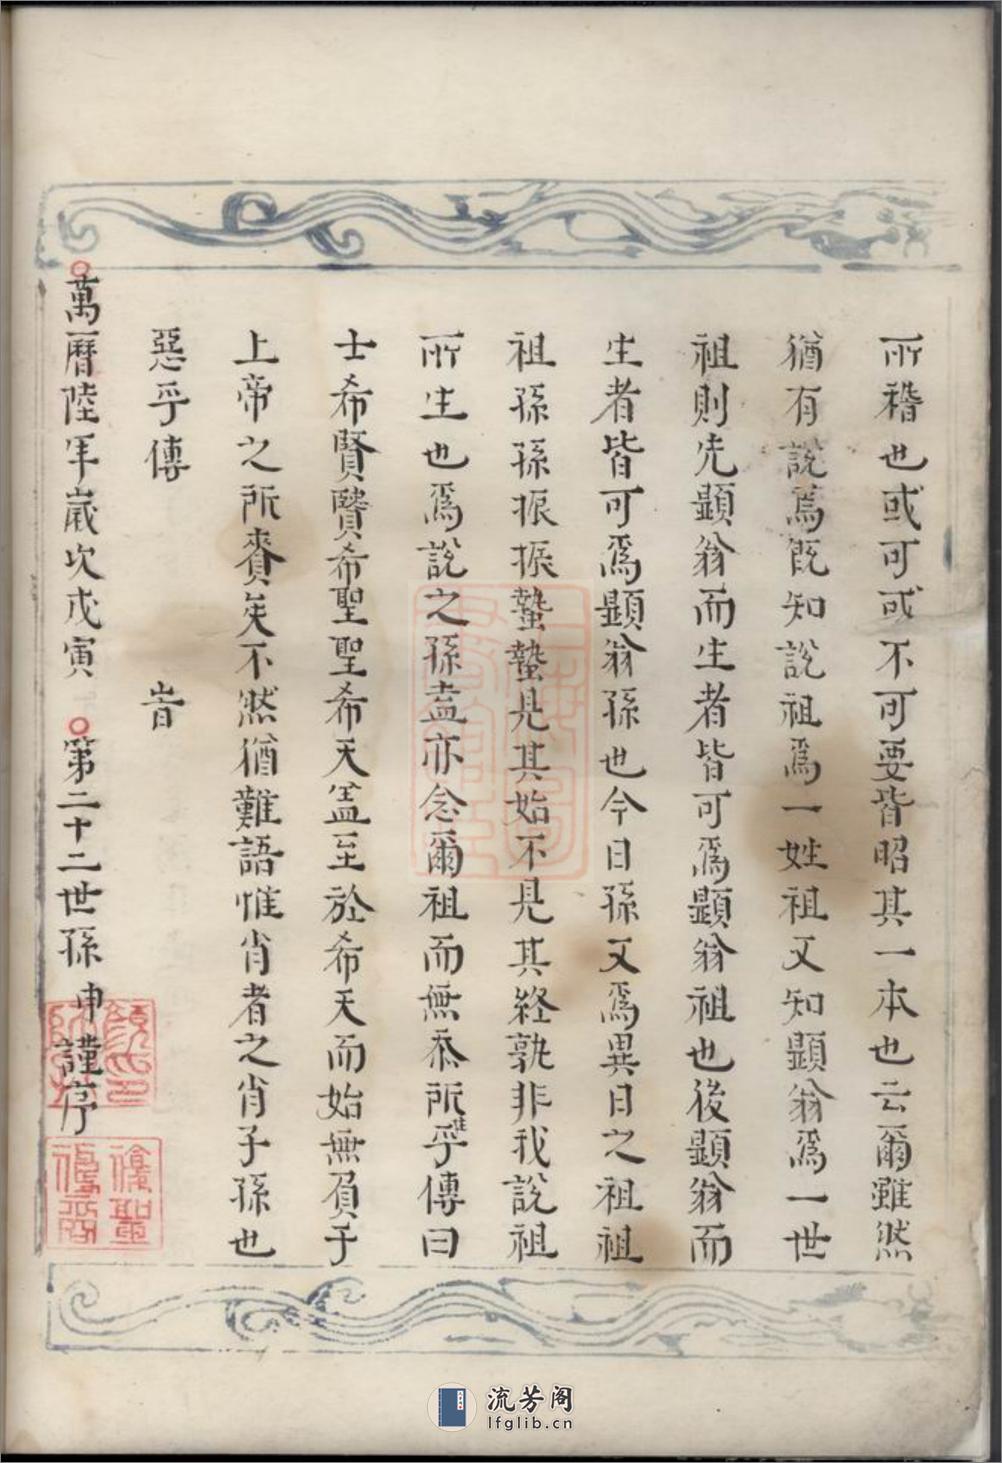 所稽也或可或不可要皆昭其一本也云爾雖然
猶有說焉既知說祖爲一姓祖又知顯翁爲一世
祖則先顯翁而生者皆可爲顯翁祖也後顯翁而
生者皆可爲顯翁孫也今日孫又爲異日之祖祖
祖孫孫振振蟄蟄見其始不見其終孰非我說祖
所生也爲說之孫盍亦念爾祖而無忝所乎傳曰
士希賢賢希聖聖希天盖至於希天而始無負于
上帝之所賚矣不然猶難語惟肖者之肖子孫也
惡乎傳
旹
萬曆陸年歲次戊寅 第二十二世孫申謹序
復聖
流芳阁
lfglib.cn